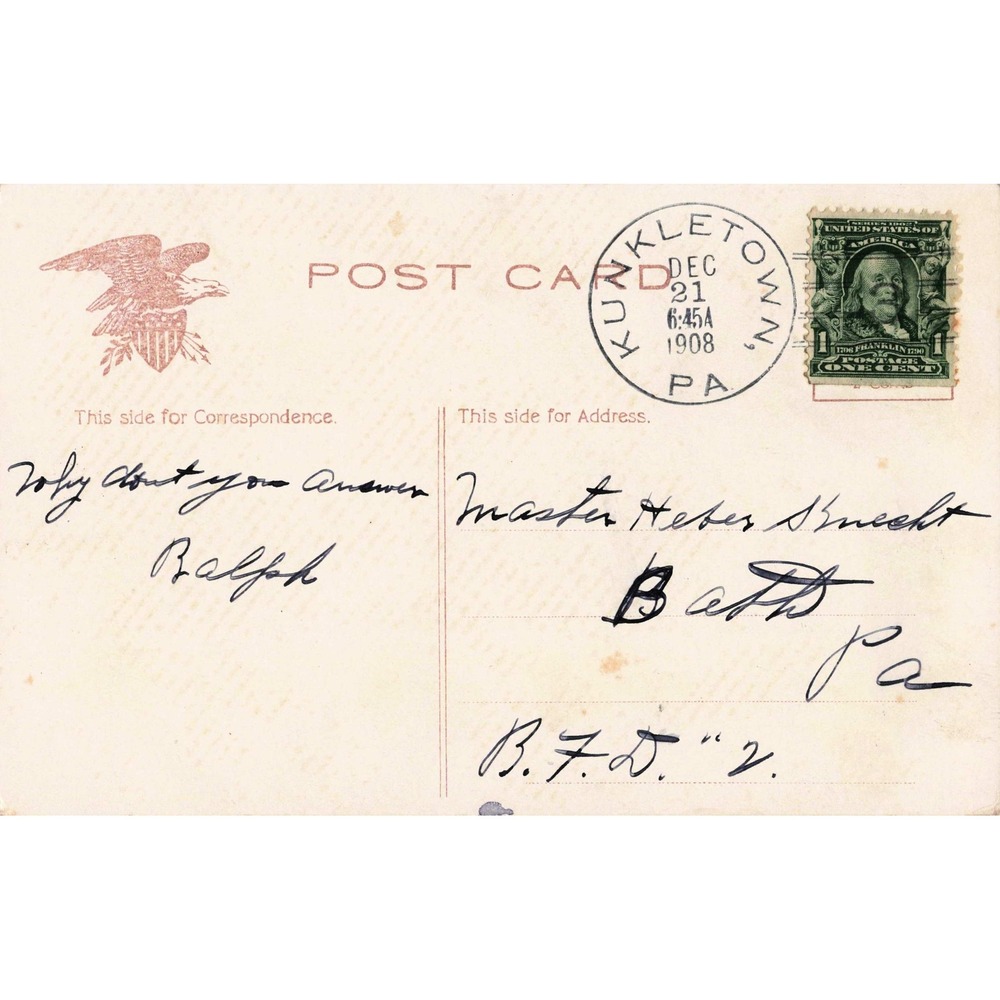 POST CARD
KUNKLETOWN,
PA
DEC
21
6:45A
1908
SERIES 1902
UNITED STATES OF
AMERICA
1706 FRANKLIN 1790
1 1
POSTAGE
ONE CENT
This side for Correspondence.
Why dont you answer
Ralph
This side for Address.
Master Heber Knecht
Bath
Pa
R.F.D. "2.